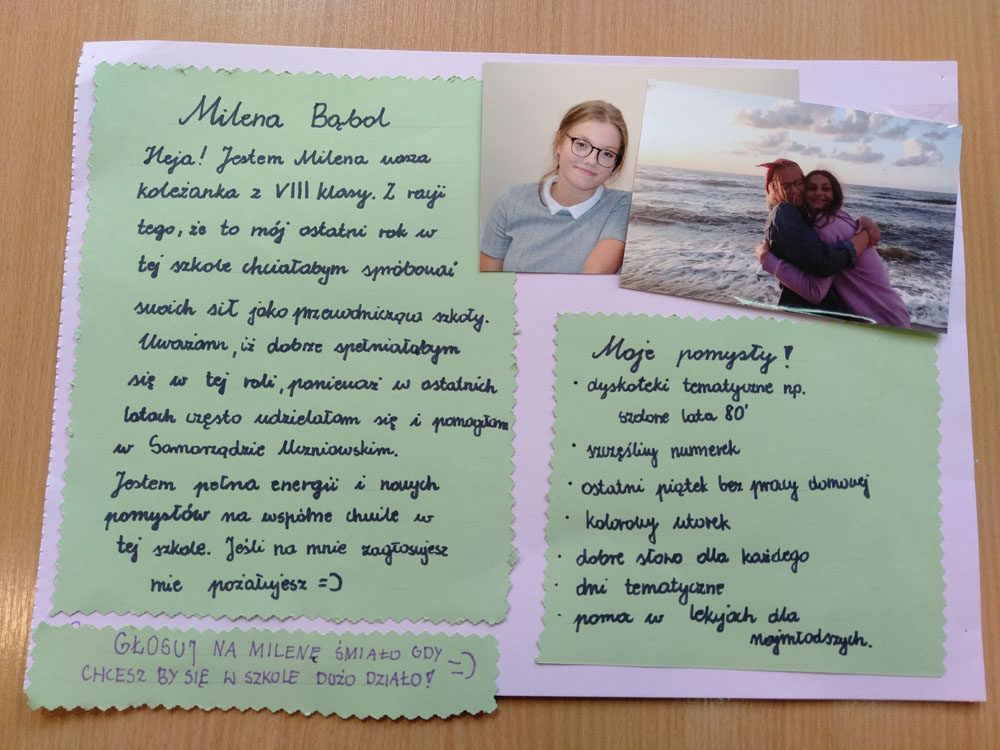 Milena Bąbol
Heja! Jestem Milena wasza
koleżanka z VIII klasy. Z racji
tego, że to mój ostatni rok w
tej szkole chciałabym spróbować
swoich sił jako przewodnicząca szkoły.
Uważam, iż dobrze spełniałabym
się w tej roli, ponieważ w ostatnich
latach często udzielałam się i pomagłam
w Samorządzie Uczniowskim.
Jestem pełna energii i nowych
pomysłów na wspólne chwile w
tej szkole. Jeśli na mnie zagłosujesz
nie pożałujesz =)
GŁOSUJ NA MILENĘ ŚMIAŁO GDY
CHCESZ BY SIĘ W SZKOLE DUŻO DZIAŁO! =)
Moje pomysły!
• dyskoteki tematyczne np.
szalone lata 80'
• szczęśliwy numerek
• ostatni piątek bez pracy domowej
• kolorowy wtorek
• dobre słowo dla każdego
• dni tematyczne
• pomoc w lekcjach dla
najmłodszych.